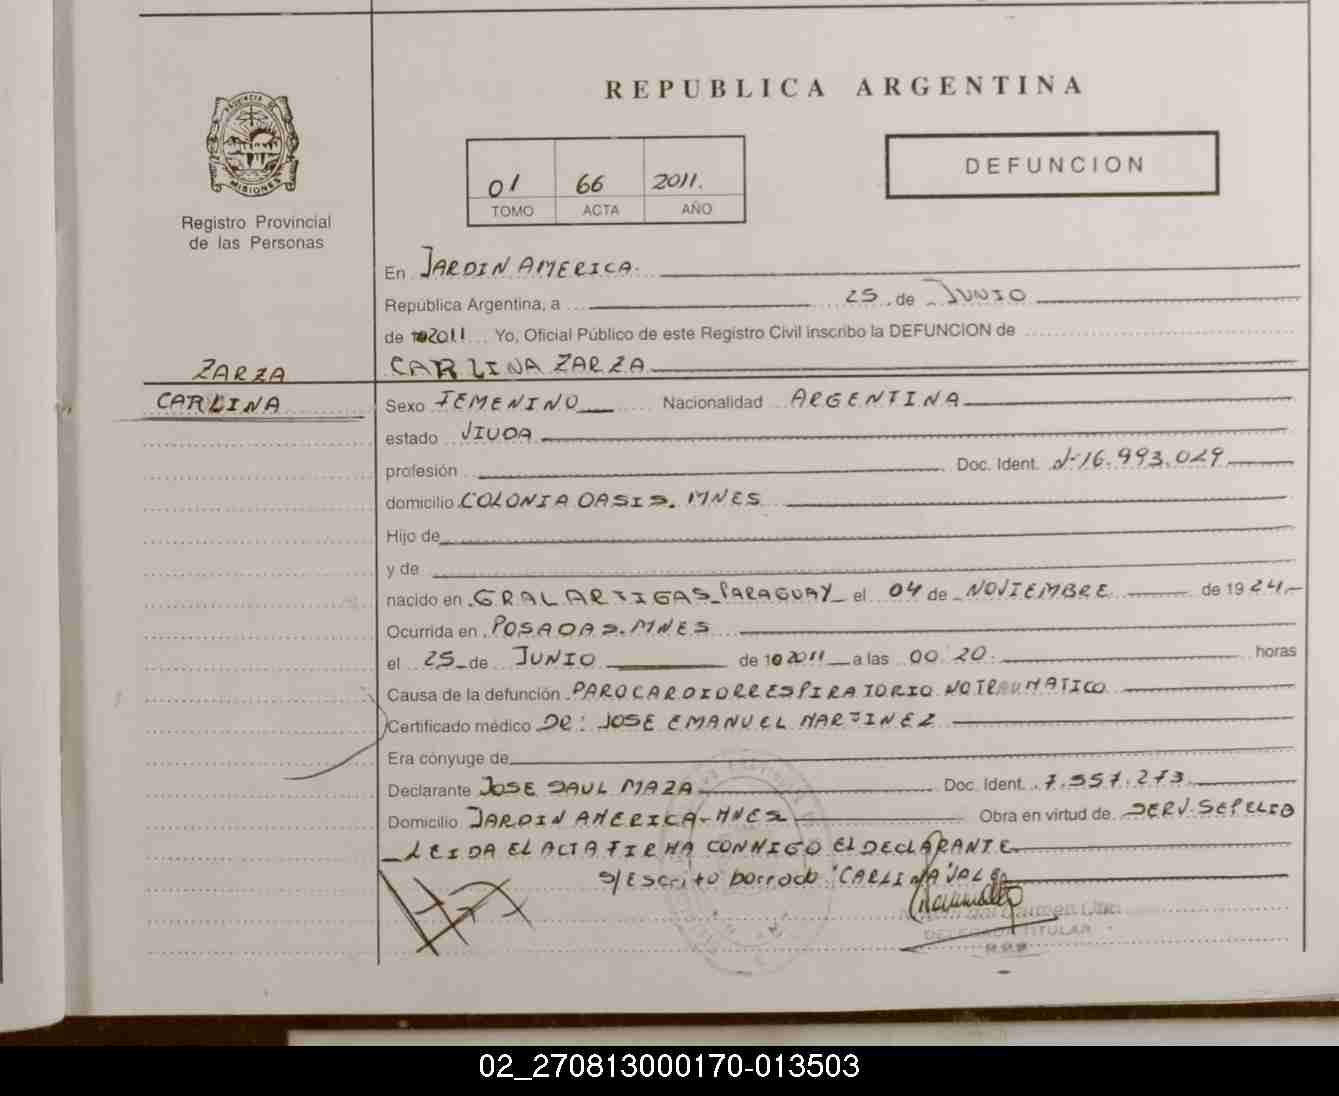 REPUBLICA ARGENTINA
PROVINCIA DE
MISIONES
Registro Provincial
de las Personas
01 66 2011.
TOMO ACTA AÑO
DEFUNCION
En JARDIN AMERICA.
República Argentina, a 25 de JUNIO
de 2011 Yo, Oficial Público de este Registro Civil inscribo la DEFUNCION de
ZARZA
CARLINA
CARLINA ZARZA
Sexo FEMENINO Nacionalidad ARGENTINA
estado VIUDA
profesión Doc. Ident. Nº 16.993.029
domicilio COLONIA OASIS. MNES
Hijo de
y de
nacido en GRAL ARTIGAS_PARAGUAY_ el 04 de NOVIEMBRE de 1924
Ocurrida en POSADAS. MNES
el 25 de JUNIO de 2011 a las 00.20. horas
Causa de la defunción PARO CARDIORRESPIRATORIO NO TRAUMATICO
Certificado médico DR: JOSE EMANUEL MARTINEZ
Era cónyuge de
Declarante JOSE SAUL MAZA Doc. Ident. 7.557.273
Domicilio JARDIN AMERICA-MNES Obra en virtud de SERV. SEPELIO
LEIDA EL ACTA FIRMA CONMIGO EL DECLARANTE
s/Escrito borrado "CARLINA" VALE
del Carmen
TITULAR
02_270813000170-013503